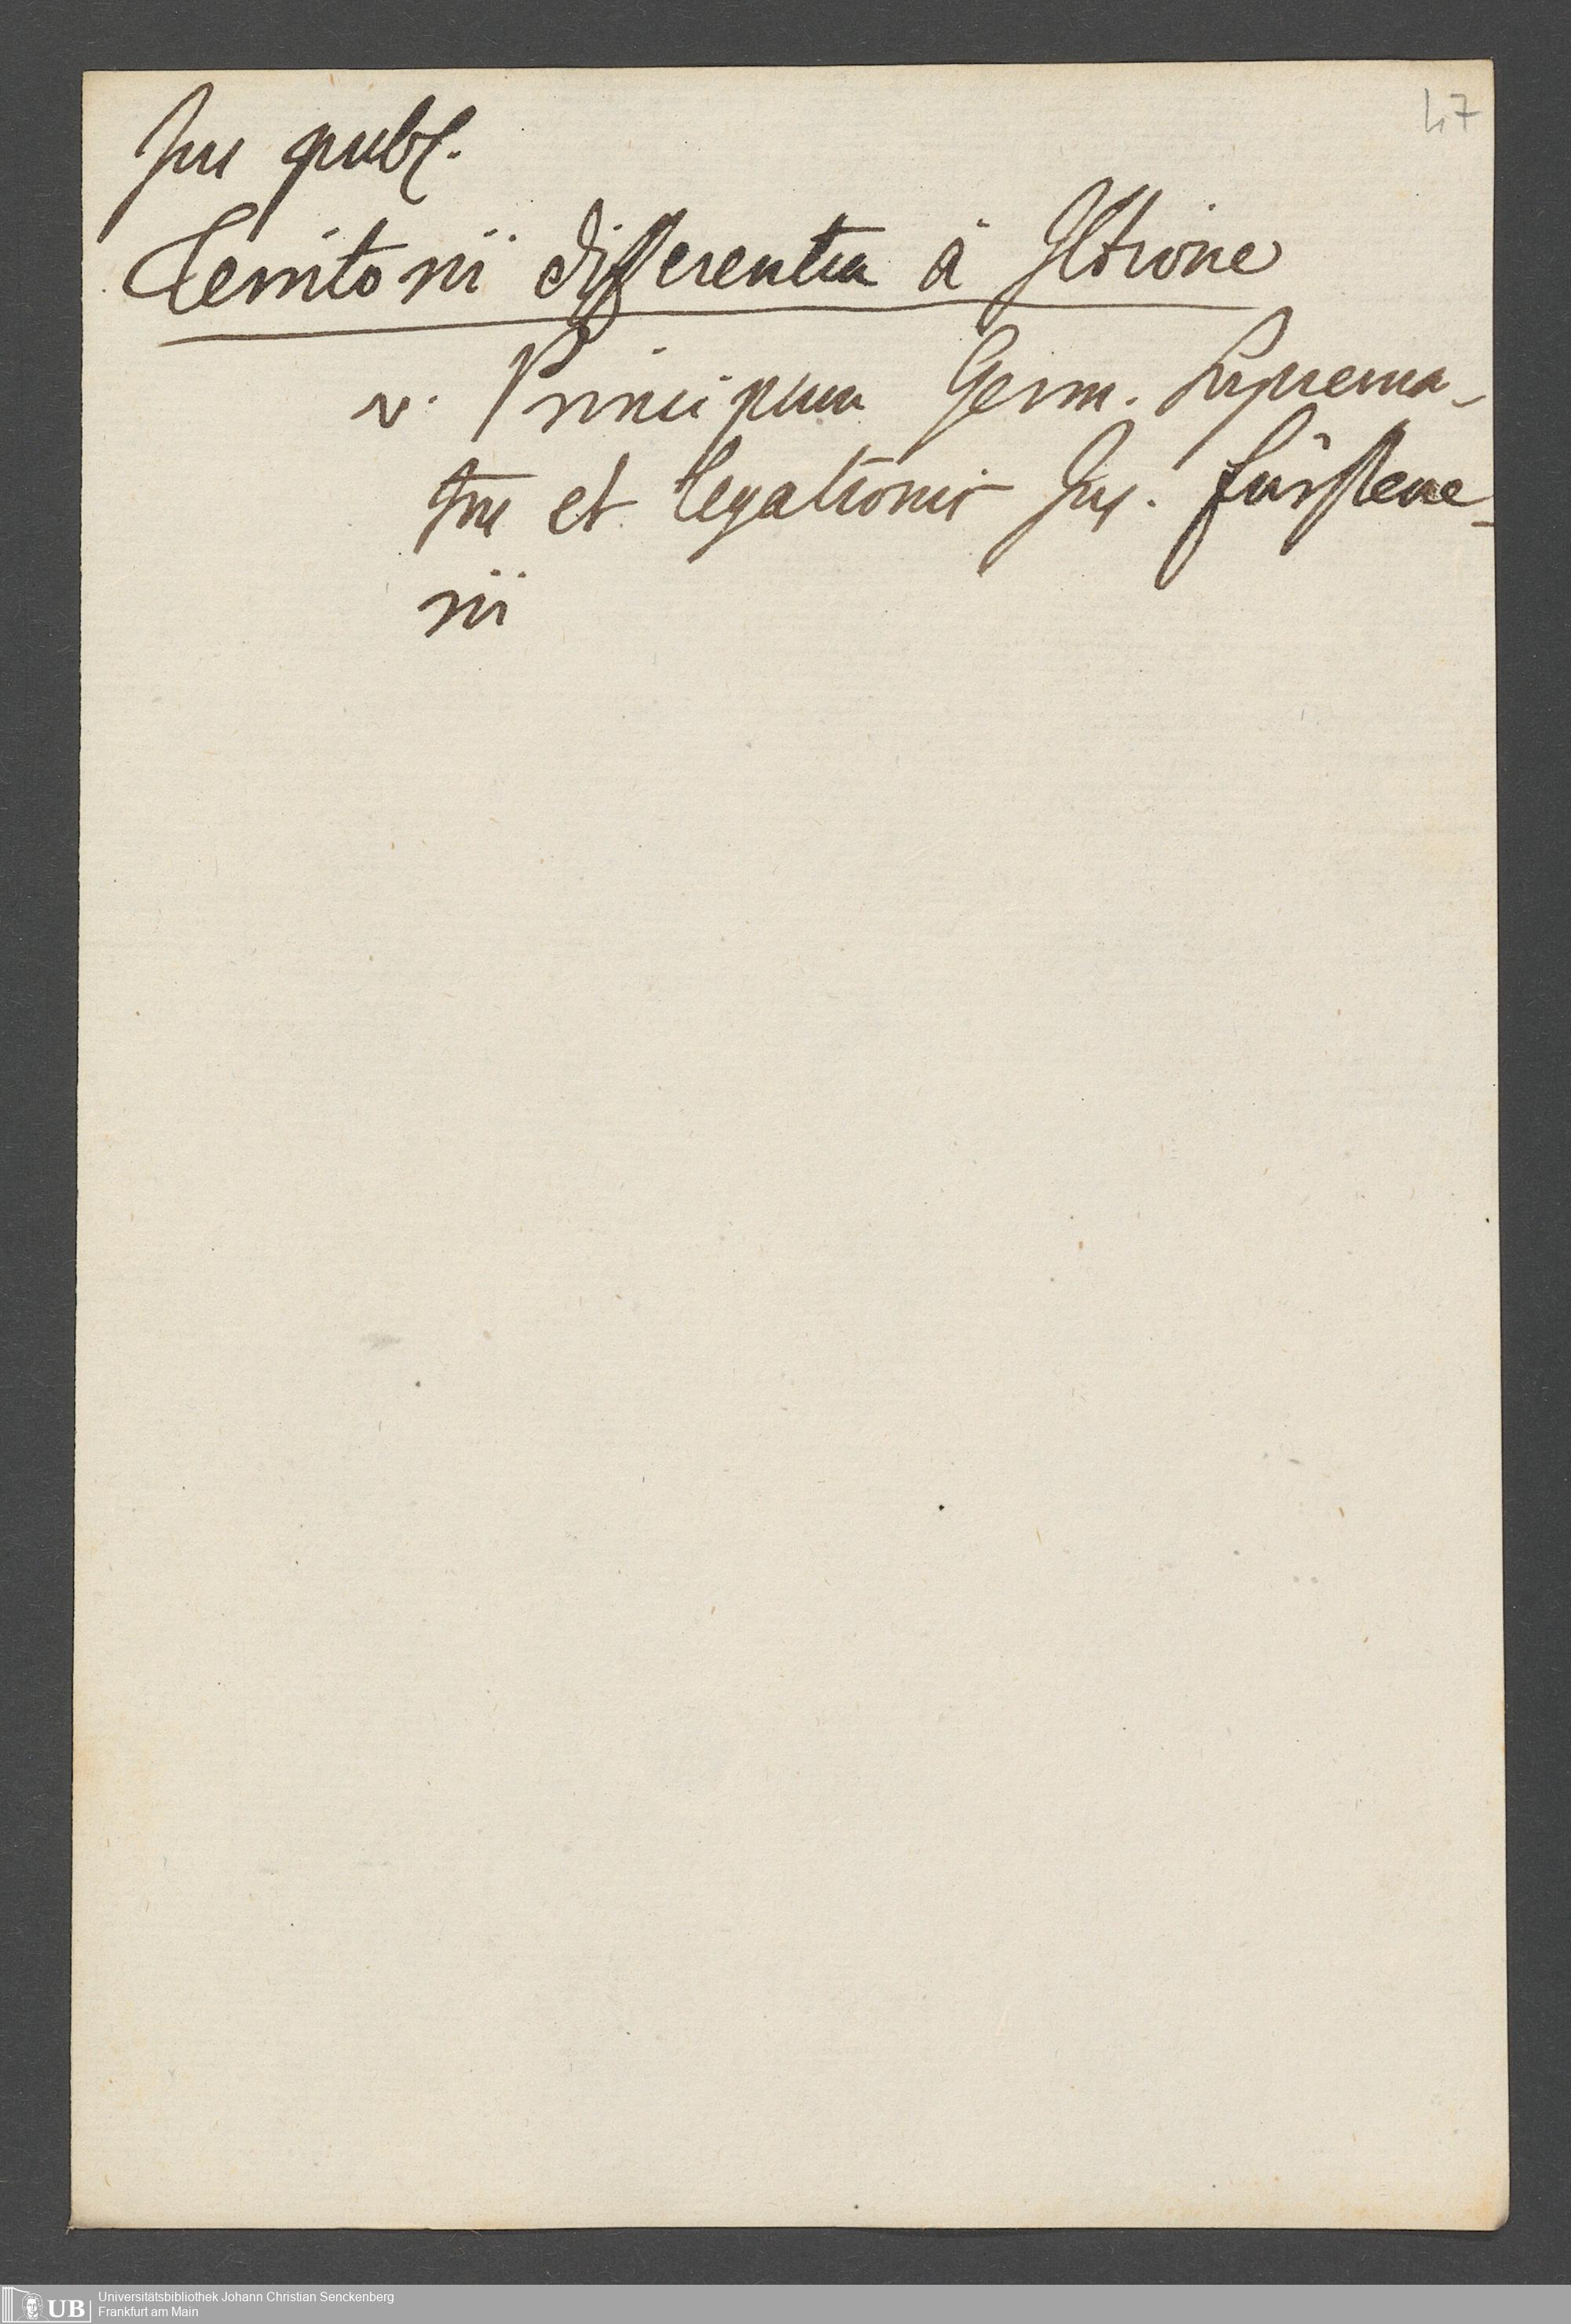 47
Jus publ.
Territorii differentia à Jctione
v. Principum Germ. Suprema-
tus et legationis Jus. Fürstene-
rii
UB
Universitätsbibliothek Johann Christian Senckenberg
Frankfurt am Main